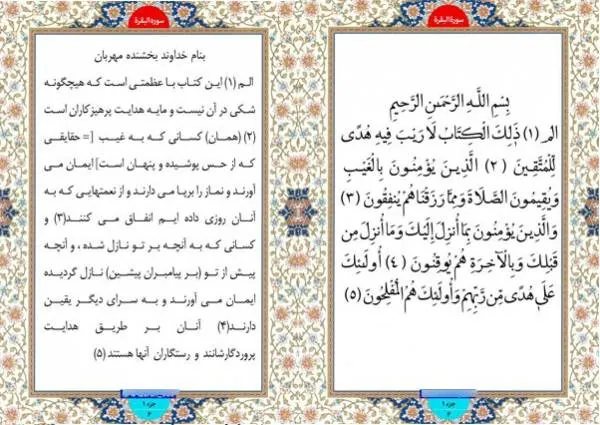 سورة البقرة
بِسْمِ اللَّهِ الرَّحْمَنِ الرَّحِيمِ
الم (۱) ذَٰلِكَ الْكِتَابُ لَا رَيْبَ فِيهِ هُدًى
لِلْمُتَّقِينَ (۲) الَّذِينَ يُؤْمِنُونَ بِالْغَيْبِ
وَيُقِيمُونَ الصَّلَاةَ وَمِمَّا رَزَقْنَاهُمْ يُنْفِقُونَ (۳)
وَالَّذِينَ يُؤْمِنُونَ بِمَا أُنْزِلَ إِلَيْكَ وَمَا أُنْزِلَ مِنْ
قَبْلِكَ وَبِالْآخِرَةِ هُمْ يُوقِنُونَ (٤) أُولَئِكَ
عَلَى هُدًى مِّن رَّبِّهِمْ وَأُولَئِكَ هُمُ الْمُفْلِحُونَ (۵)
جزء ۱
۲
سورة البقرة
بنام خداوند بخشنده مهربان
الم (۱) این کتاب با عظمتی است که هیچگونه
شکی در آن نیست و مایه هدایت پرهیزکاران است
(۲) (همان) کسانی که به غیب [= حقایقی
که از حس پوشیده و پنهان است] ایمان می
آورند و نماز را برپا می دارند و از نعمتهایی که به
آنان روزی داده ایم انفاق می کنند(۳) و
کسانی که به آنچه بر تو نازل شده ، و آنچه
پیش از تو (بر پیامبران پیشین) نازل گردیده
ایمان می آورند و به سرای دیگر یقین
دارند(۴) آنان بر طریق هدایت
پروردگارشانند و رستگاران آنها هستند (۵)
جزء ۱
۲